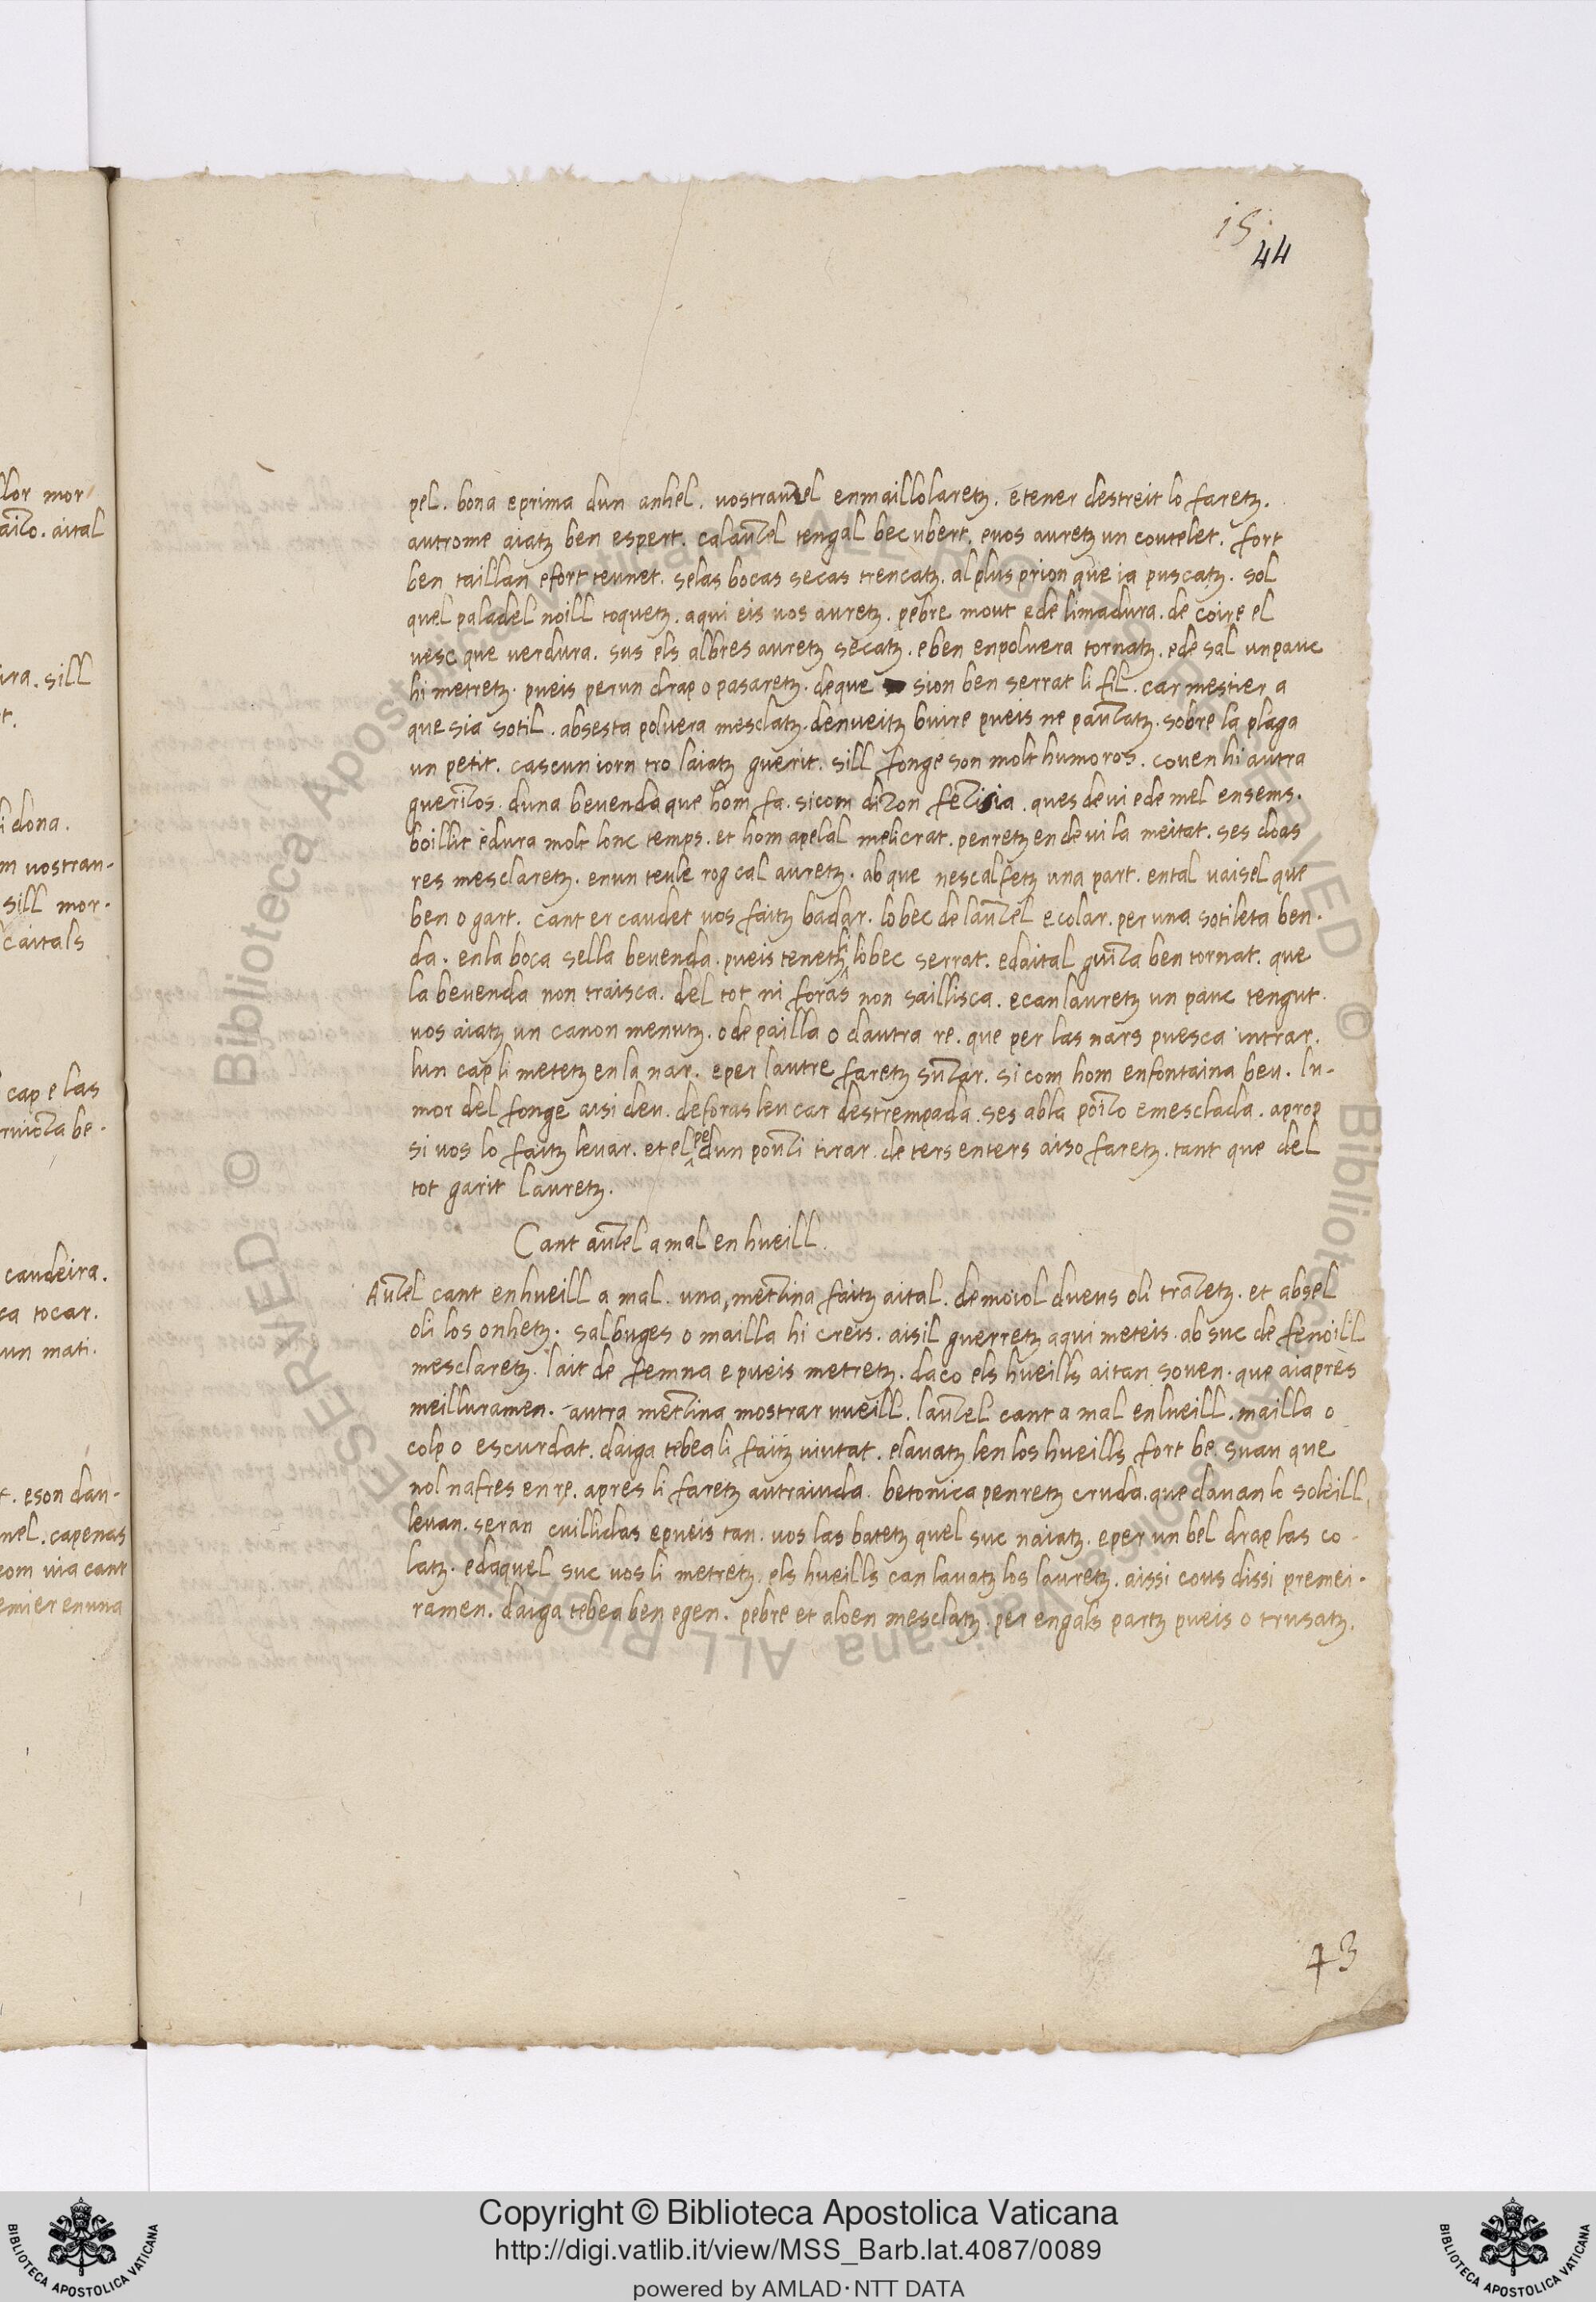 15.
44
pel. bona eprima dun anhel. vostrauzel enmaillolaretz. etener destreit lo faretz.
autrome aiatz ben espert. calauzel tengal bec ubert. evos auretz un coutelet. fort
ben taillan efort tevnet. selas bocas secas trencatz. al plus prion que ia puscatz. sol
quel paladel noill toquetz. aqui eis vos auretz. pebre mout ede limadura. de coire el
vesc que verdura. sus els albres auretz secatz. eben enpolvera tornatz. ede sal un pauc
hi metretz. pueis perun drap o pasaretz. deque sion ben serrat li fil. car mestier a
que sia sotil. absesta polvera mesclatz. denveitz buire pueis ne pauzatz. sobre la plaga
un petit. cascun iorn tro laiatz guerit. sill fonge son molt humoros. coven hi autra
guerizos. duna bevenda que hom fa. sicom dizon fezisia. ques devi ede mel ensems.
boillit edura molt lonc temps. et hom apelal melicrat. penretz en devi la meitat. ses doas
res mesclaretz. enun teule rog cal auretz. ab que nescalfetz una part. ental vaisel que
ben o gart. cant er caudet vos faitz badar. lo bec de lauzel e colar. per una sotileta ben-
da. enla boca sella bevenda. pueis tenetz li lo bec serrat. edaital guiza ben tornat. que
la bevenda non traisca. del tot ni foras non saillisca. ecan lauretz un pauc tengut.
vos aiatz un canon menutz. o de pailla o dautra re. que per las nars puesca intrar.
lun cap li metetz en la nar. eper lautre faretz suzar. si com hom enfontaina beu. lu-
mor del fonge aisi deu. deforas leu car destrempada. ses abla poizo emesclada. aprop
si vos lo faitz levar. et el pel dun pouzi tirar. de ters enters aiso faretz. tant que del
tot garit lauretz.
Cant auzel a mal en hueill.
Auzel cant enhueill a mal. una metzina faitz aital. demoiol dueus oli trazetz. et absel
oli los onhetz. salbuges o mailla hi creis. aisil guerretz aqui meteis. ab suc de fenoill
mesclaretz. lait de femna e pueis metretz. daco els hueills aitan soven. que aiapres
meilluramen. autra metzina mostrar vueill. lauzel cant a mal enlueill. mailla o
colp o escurdat. daiga tebea li faitz viutat. elavatz len los hueills fort be. suau que
nol nafres en re. apres li faretz autraiuda. betonica penretz cruda. que davan lo soleill
levan. seran cuillidas epueis tan. vos las batetz quel suc naiatz. eper un bel drap las co-
latz. edaquel suc vos li metretz. els hueills can lavatz los lauretz. aissi cous dissi premei-
ramen. daiga tebea ben egen. pebre et aloen mesclatz. per engals partz pueis o trusatz.
43
Copyright © Biblioteca Apostolica Vaticana
http://digi.vatlib.it/view/MSS_Barb.lat.4087/0089
powered by AMLAD·NTT DATA